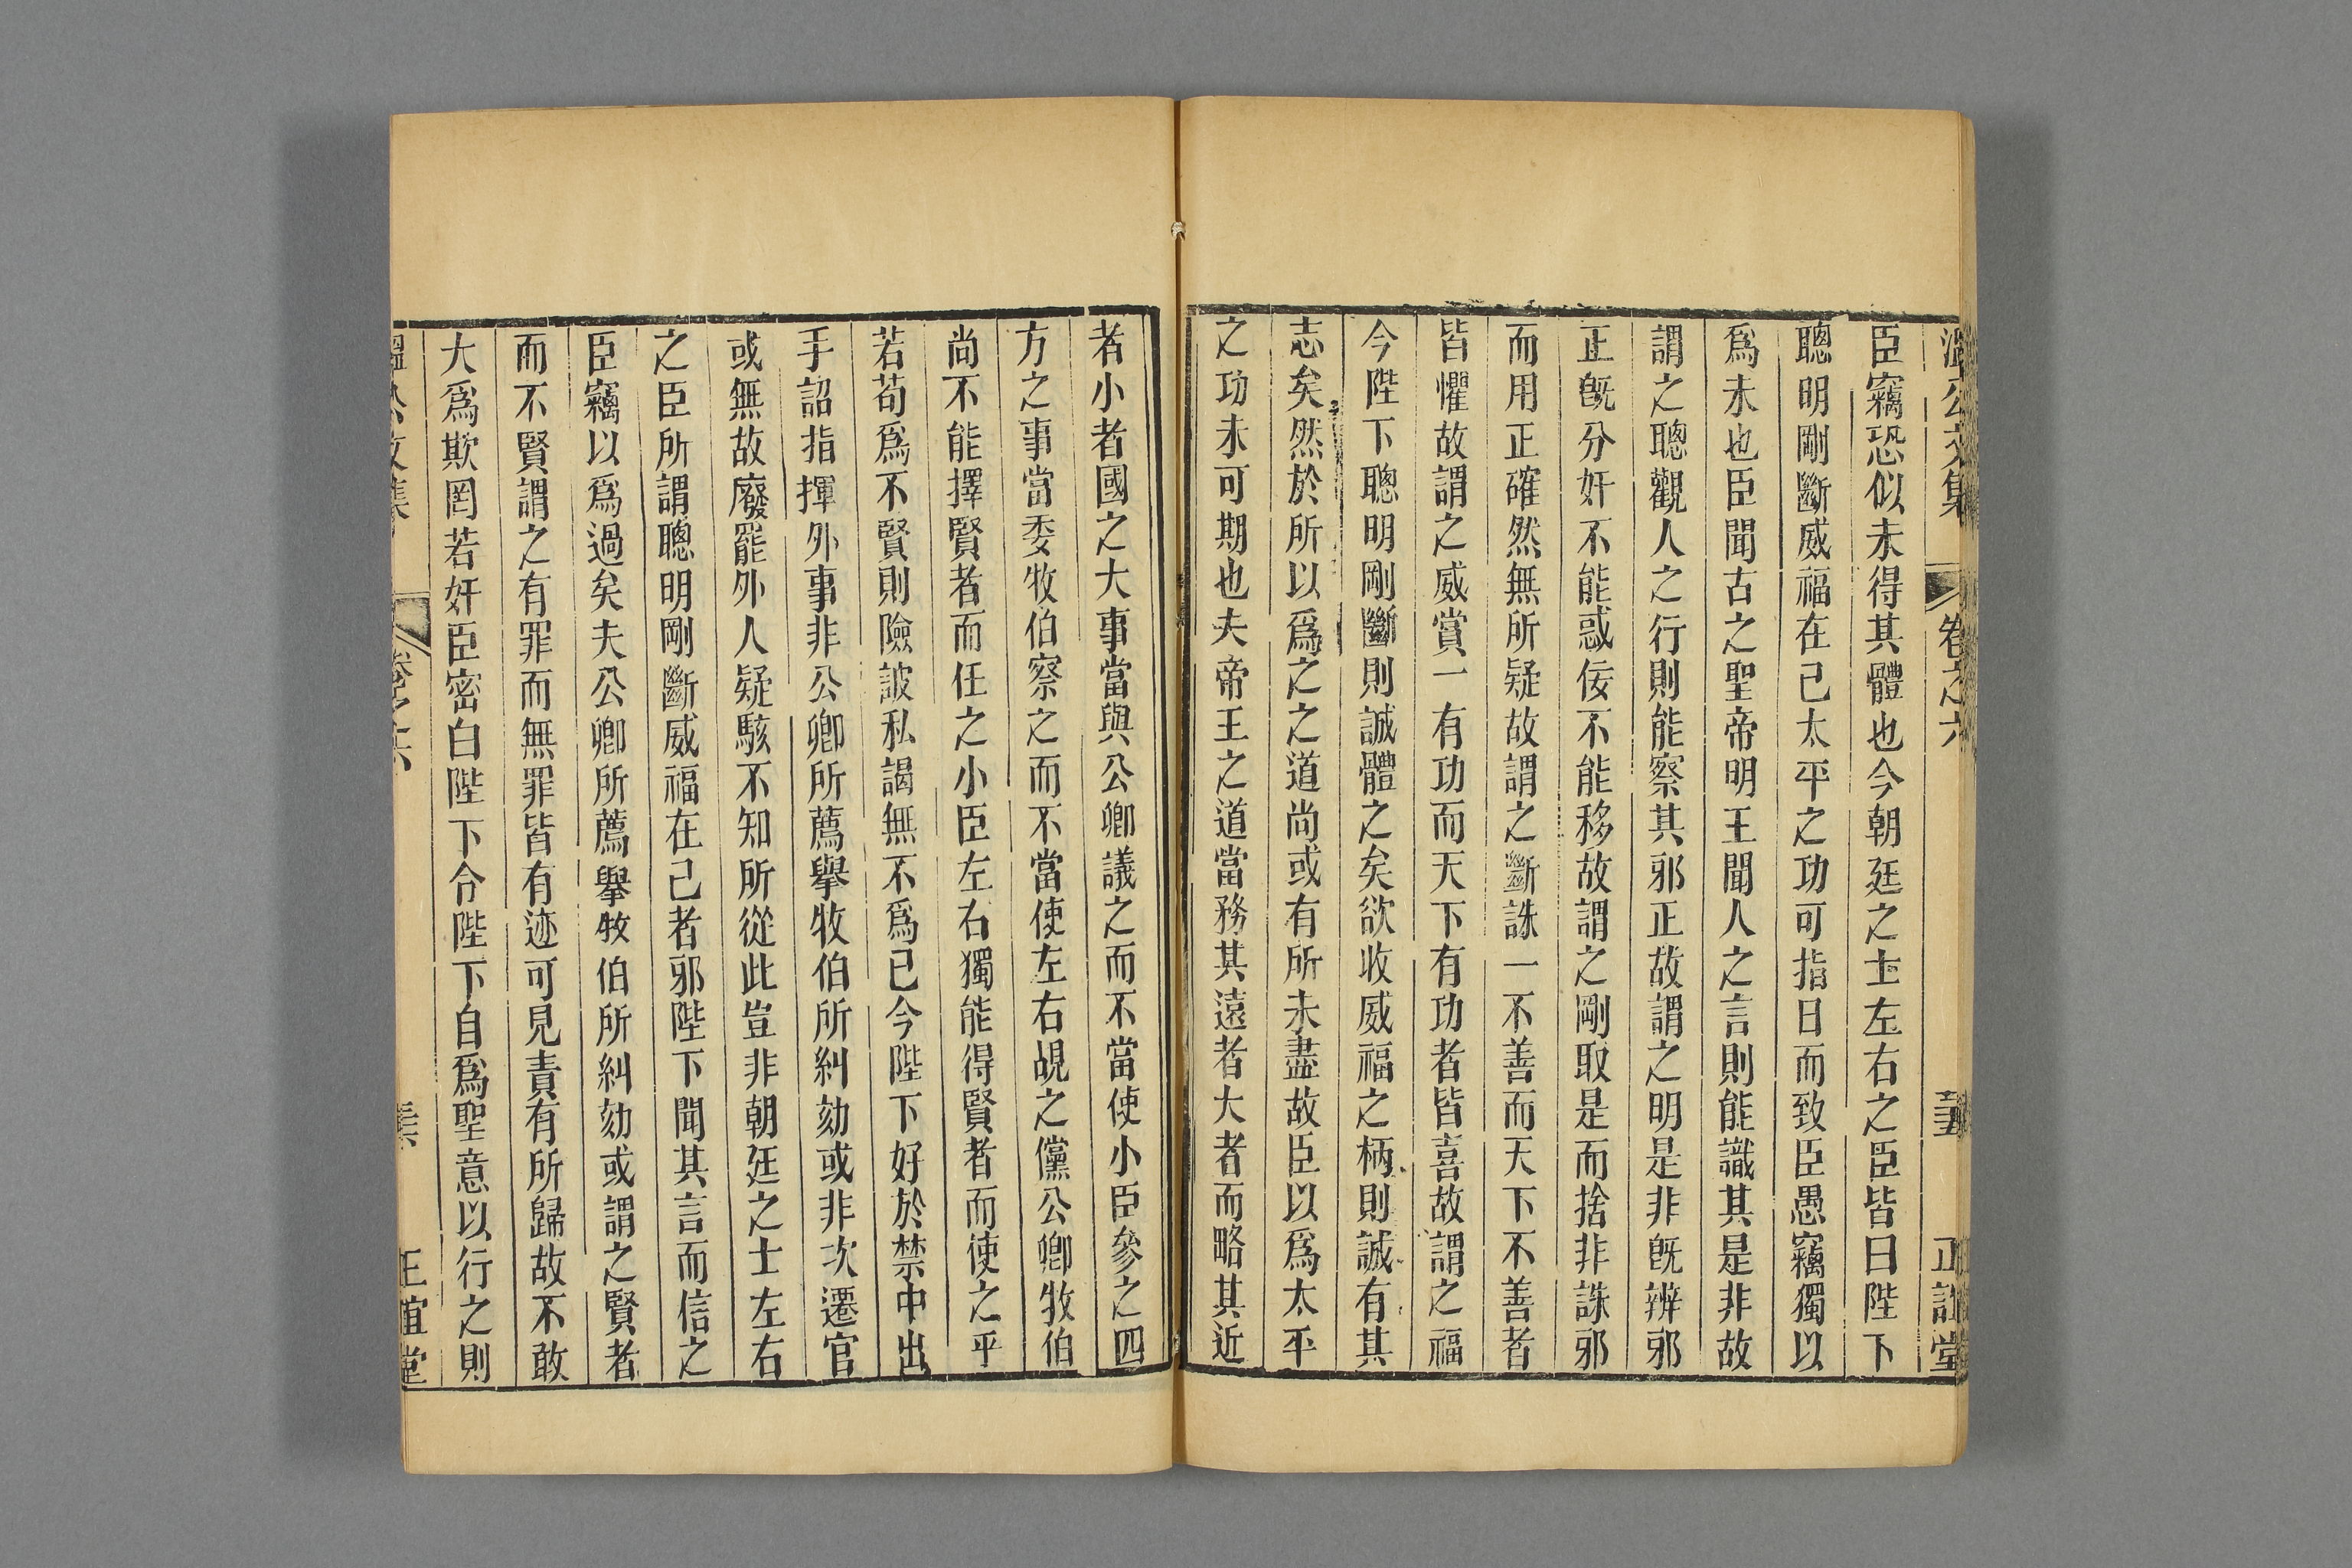 溫公文集
卷之六
正誼堂
臣竊恐似未得其體也今朝廷之士左右之臣皆曰陛下
聰明剛斷威福在己太平之功可指日而致臣愚竊獨以
爲未也臣聞古之聖帝明王聞人之言則能識其是非故
謂之聰觀人之行則能察其邪正故謂之明是非旣辨邪
正旣分奸不能惑佞不能移故謂之剛取是而捨非誅邪
而用正確然無所疑故謂之斷誅一不善而天下不善者
皆懼故謂之威賞一有功而天下有功者皆喜故謂之福
今陛下聰明剛斷則誠體之矣欲收威福之柄則誠有其
志矣然於所以爲之之道尚或有所未盡故臣以爲太平
之功未可期也夫帝王之道當務其遠者大者而略其近
者小者國之大事當與公卿議之而不當使小臣參之四
方之事當委牧伯察之而不當使左右覘之儻公卿牧伯
尚不能擇賢者而任之小臣左右獨能得賢者而使之乎
若苟爲不賢則險詖私謁無不爲已今陛下好於禁中出
手詔指揮外事非公卿所薦舉牧伯所糾劾或非次遷官
或無故廢罷外人疑駭不知所從此豈非朝廷之士左右
之臣所謂聰明剛斷威福在己者邪陛下聞其言而信之
臣竊以爲過矣夫公卿所薦舉牧伯所糾劾或謂之賢者
而不賢謂之有罪而無罪皆有迹可見責有所歸故不敢
大爲欺罔若奸臣密白陛下令陛下自爲聖意以行之則
溫公文集
卷之六
正誼堂